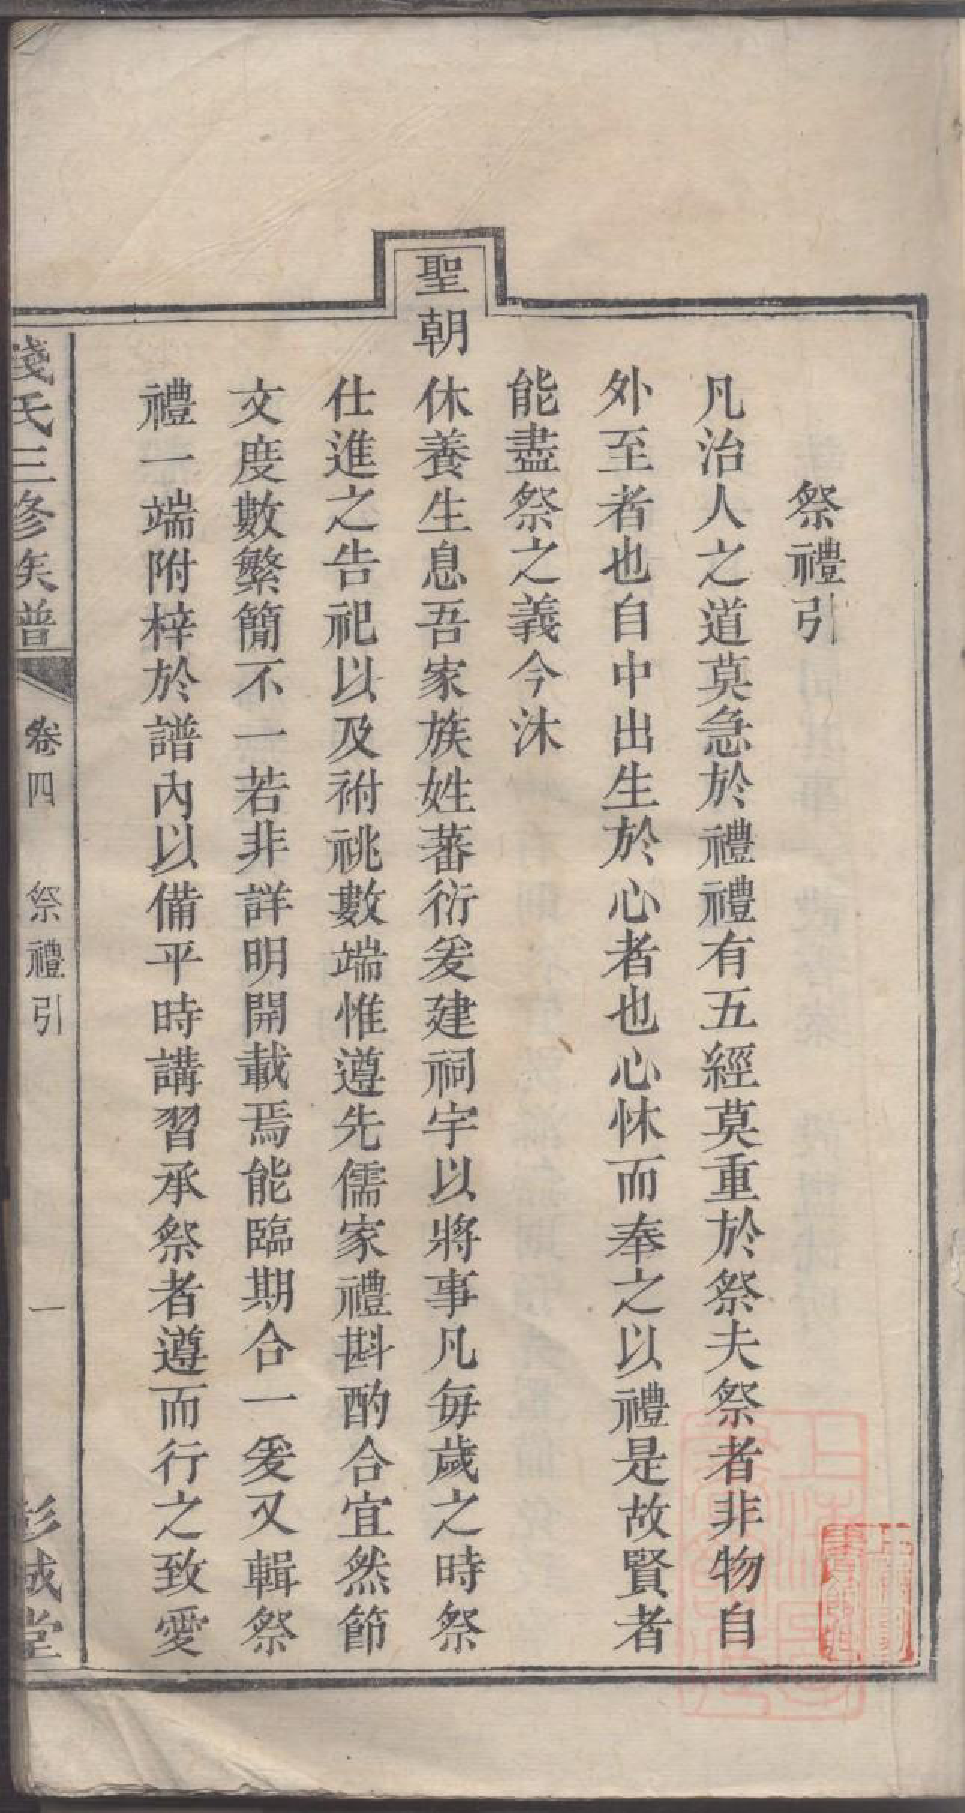 祭禮引
凡治人之道莫急於禮禮有五經莫重於祭夫祭者非物自
外至者也自中出生於心者也心怵而奉之以禮是故賢者
能盡祭之義今沐
聖朝休養生息吾家族姓蕃衍爰建祠宇以將事凡每歲之時祭
仕進之告祀以及祔祧數端惟遵先儒家禮斟酌合宜然節
文度數繁簡不一若非詳明開載焉能臨期合一爰又輯祭
禮一端附梓於譜內以備平時講習承祭者遵而行之致愛
錢氏三修族譜
卷四
祭禮引
一
彭城堂